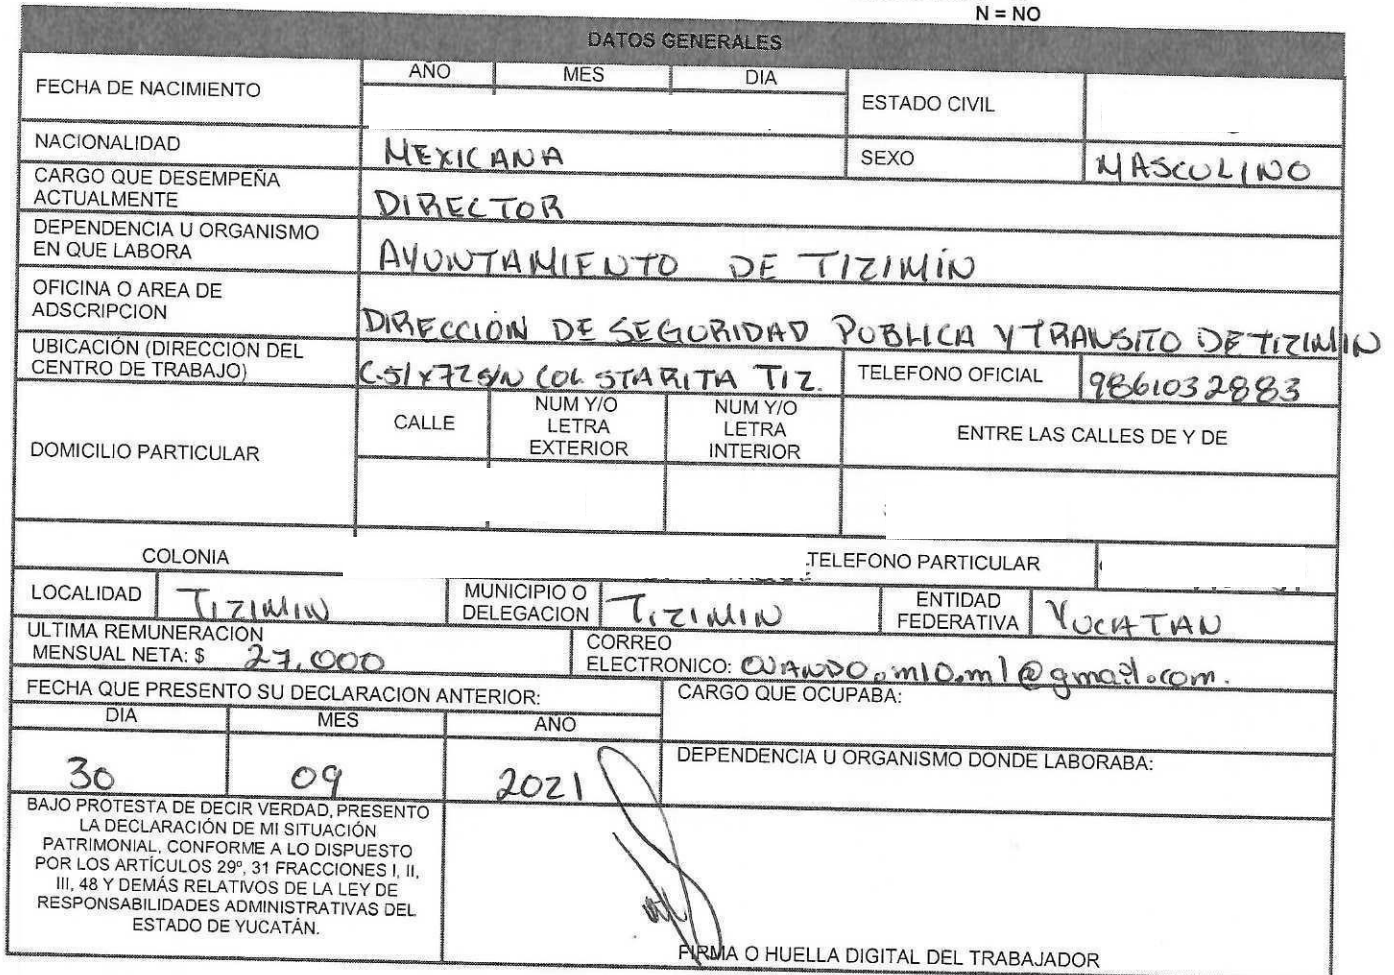 N = NO
DATOS GENERALES
FECHA DE NACIMIENTO
AÑO MES DIA
ESTADO CIVIL
NACIONALIDAD MEXICANA SEXO MASCULINO
CARGO QUE DESEMPEÑA
ACTUALMENTE DIRECTOR
DEPENDENCIA U ORGANISMO
EN QUE LABORA AYUNTAMIENTO DE TIZIMÍN
OFICINA O AREA DE
ADSCRIPCION DIRECCIÓN DE SEGURIDAD PUBLICA Y TRANSITO DE TIZIMIN
UBICACIÓN (DIRECCION DEL
CENTRO DE TRABAJO) C.51x72 S/N COL STA RITA TIZ. TELEFONO OFICIAL 9861032883
DOMICILIO PARTICULAR
CALLE
NUM Y/O
LETRA
EXTERIOR
NUM Y/O
LETRA
INTERIOR
ENTRE LAS CALLES DE Y DE
COLONIA TELEFONO PARTICULAR
LOCALIDAD TIZIMIN
MUNICIPIO O
DELEGACION TIZIMIN
ENTIDAD
FEDERATIVA YUCATAN
ULTIMA REMUNERACION
MENSUAL NETA: $ 27,000
CORREO
ELECTRONICO: @gmail.com.
FECHA QUE PRESENTO SU DECLARACION ANTERIOR:
DIA MES AÑO
30 09 2021
CARGO QUE OCUPABA:
DEPENDENCIA U ORGANISMO DONDE LABORABA:
BAJO PROTESTA DE DECIR VERDAD, PRESENTO
LA DECLARACIÓN DE MI SITUACIÓN
PATRIMONIAL, CONFORME A LO DISPUESTO
POR LOS ARTÍCULOS 29º, 31 FRACCIONES I, II,
III, 48 Y DEMÁS RELATIVOS DE LA LEY DE
RESPONSABILIDADES ADMINISTRATIVAS DEL
ESTADO DE YUCATÁN.
FIRMA O HUELLA DIGITAL DEL TRABAJADOR